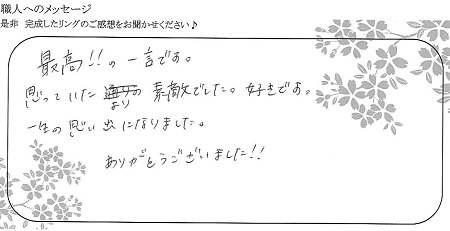 職人へのメッセージ
是非 完成したリングのご感想をお聞かせください♪
最高!!の一言です。
思っていたより素敵でした。好きです。
一生の思い出になりました。
ありがとうございました!!